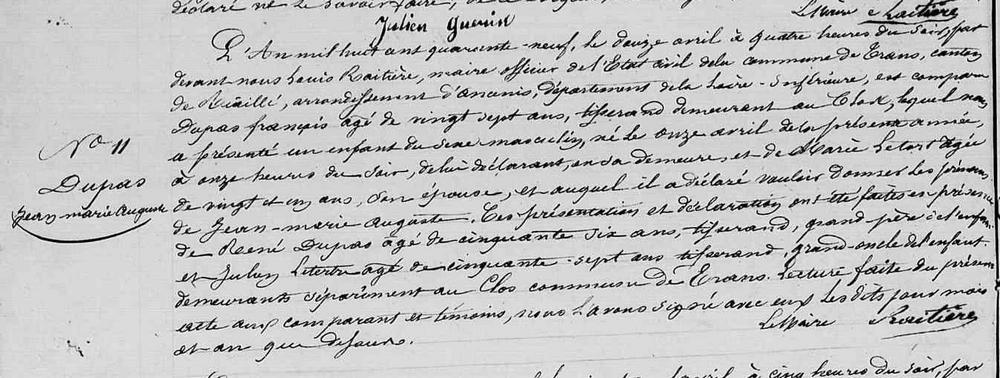 déclaré ne le savoir faire, de ce
Julien Guerin
Le Maire Raitière
L'An mil huit cent quarante-neuf, le douze avril à quatre heures du soir, par
devant nous Louis Raitière, maire officier de l'Etat civil de la commune de Trans, canton
de Riaillé, arrondissement d'Ancenis, département de la Loire-Inférieure, est comparu
Dupas françois agé de vingt sept ans, tisserand demeurant au Clos, lequel nous
a présenté un enfant du sexe masculin, né le onze avril de la présente année,
No 11
à onze heures du soir, de lui déclarant, en sa demeure, et de Marie Letort agée
Dupas
de vingt et un ans, son épouse, et auquel il a déclaré vouloir donner les prénoms
Jean marie Auguste
de Jean-marie Auguste. Ces présentation et déclaration ont été faites en présence
de René Dupas agé de cinquante six ans, tisserand, grand-père de l'enfant
et Julien Letertre agé de cinquante-sept ans tisserand, grand-oncle de l'enfant
demeurants séparément au Clos commune de Trans. Lecture faite du présent
acte aux comparant et témoins, nous l'avons signé avec eux les dits jour mois
et an que dessus.
Le Maire Raitière
à cinq heures du soir, par